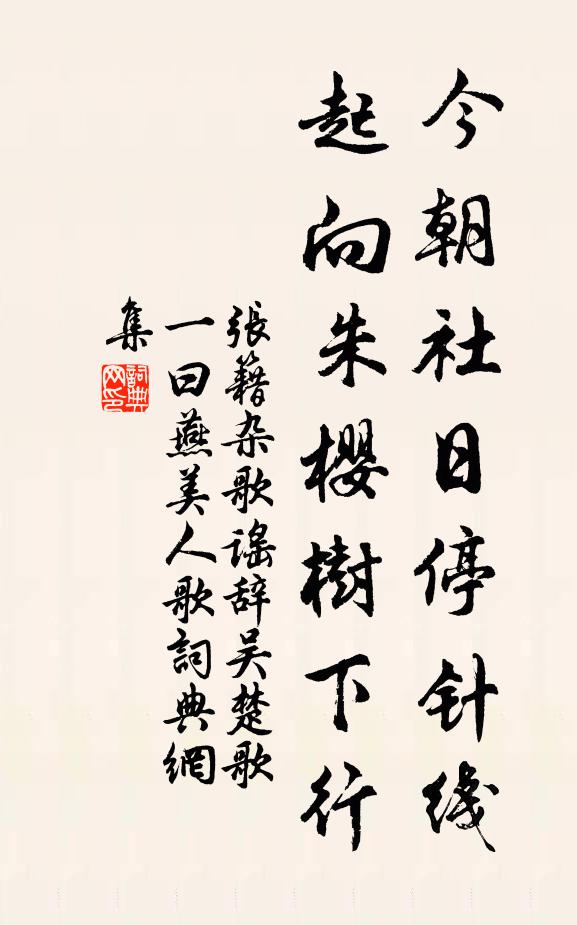 今朝社日停针线
起向朱樱樹下行
張籍杂歌谣辞吴楚歌
一曰燕美人歌詞典網
集
詞典
网印